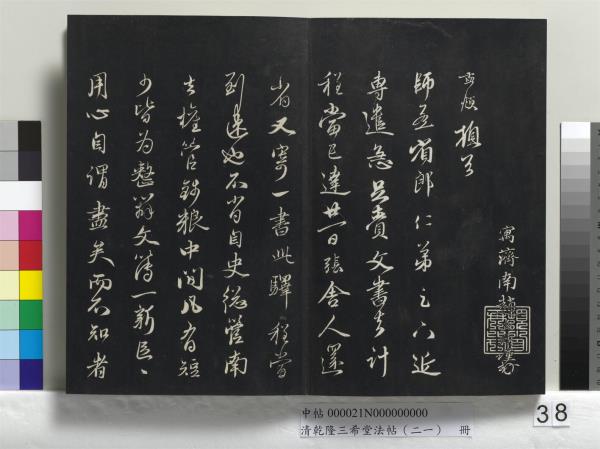 孟頫頓首
師孟省郎仁弟之下近
專遣急足賫文書去計
程當已達廿一日張舍人還
省又寄一書此驛程當
到速也不肖自史總管南
去權管錢糧中間凡有短
少皆為整辦文簿一新區〻
用心自謂盡矣而不知者
寓濟南趙
中帖 000021N000000000
清乾隆三希堂法帖(二一) 冊
38